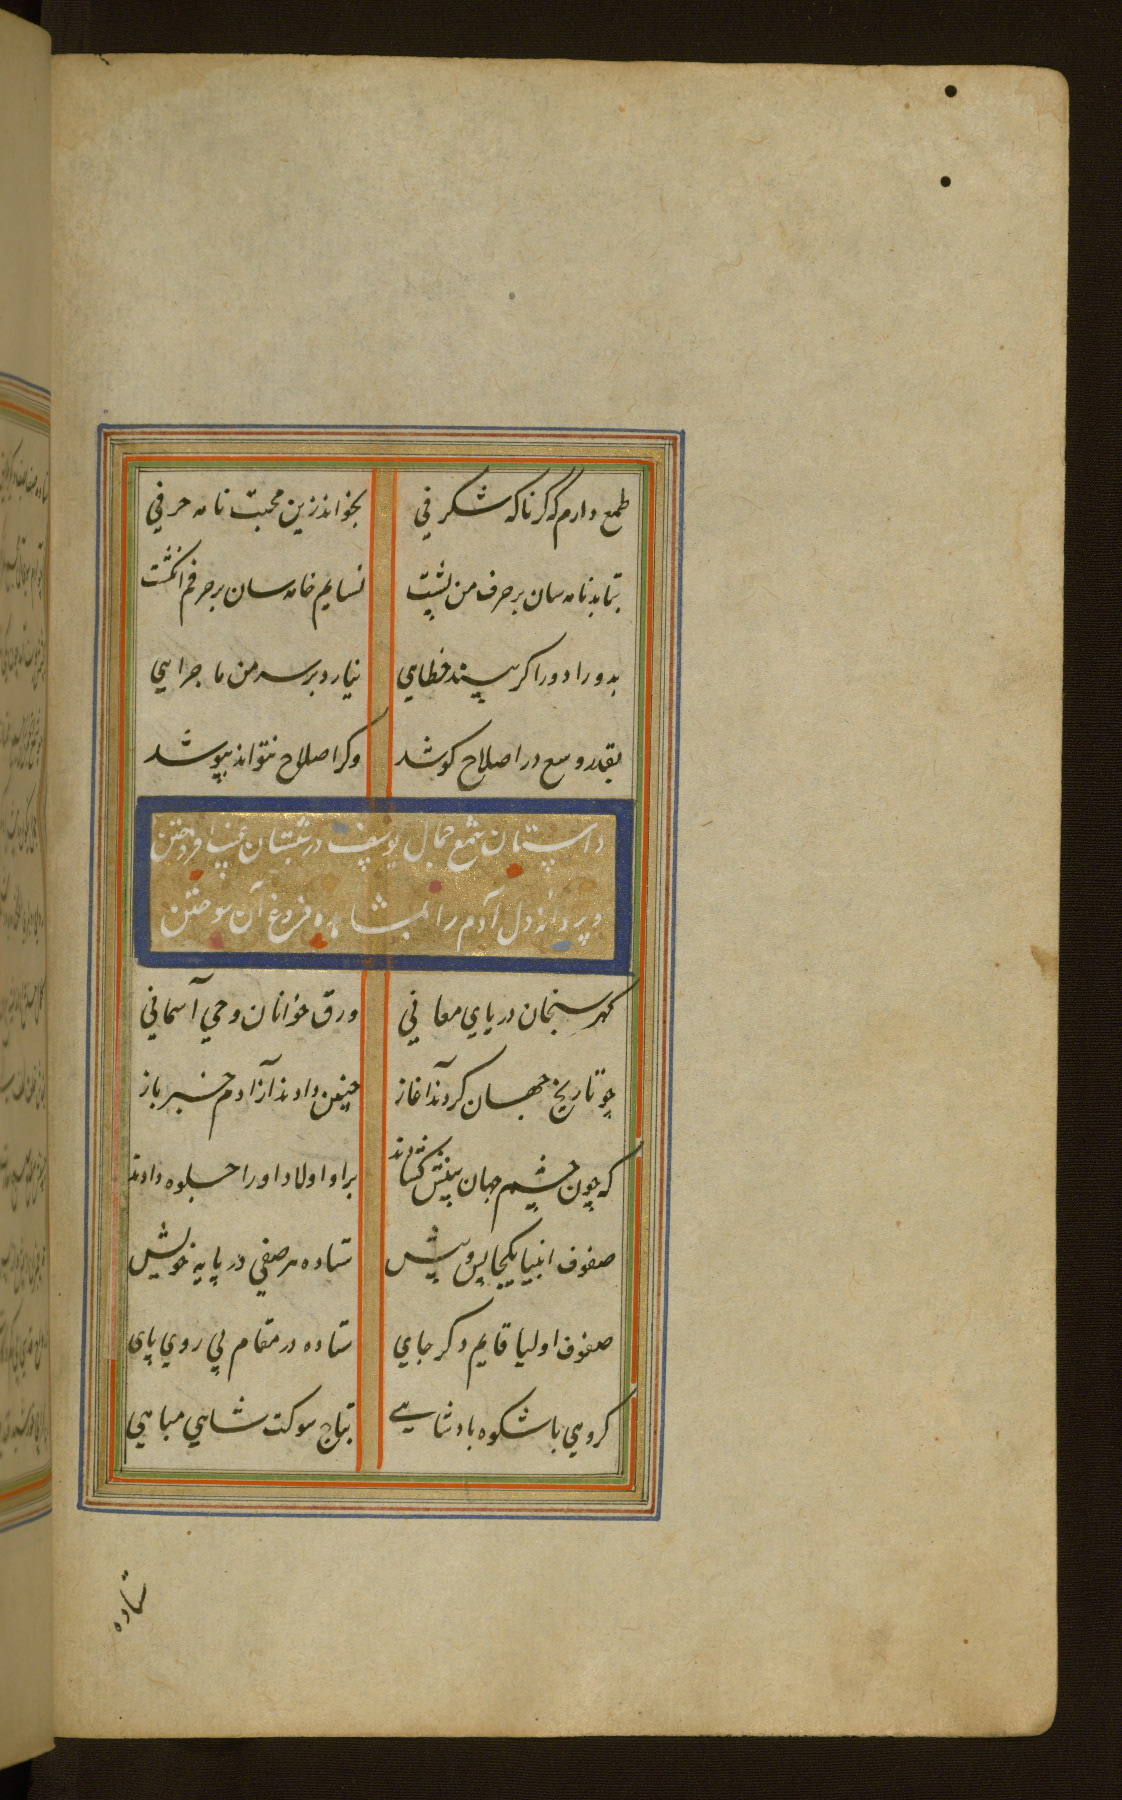 طمع دارم که گر ناکه شکرفی بخواند زین محبت نامه حرفی
نتابد نامه سان بر حرف من پشت نساید خامه سان بر حرفم انکشت
بدور ادور اکر بیند خطایی نیارد بر سر من ماجرایی
بقدر وسع در اصلاح کوشد وکر اصلاح نتواند بپوشد
داستان شمع جمال یوسف در شبستان غیب افروختن
و پروانه دل آدم را بمشاهده فروغ آن سوختن
کهر سنجان دریای معانی ورق خوانان وحی آسمانی
چو تاریخ جهان کردند آغاز چنین دادند از آدم خبر باز
که چون چشم جهان بینش کشادند برو اولاد او را جلوه دادند
صفوف انبیا یکجا پس و پیش ستاده هر صفی در پایه خویش
صفوف اولیا قایم دکر جای ستاده در مقام پی روی پای
کروهی با شکوه پادشاهی بتاج شوکت شاهی مباهی
ستاده